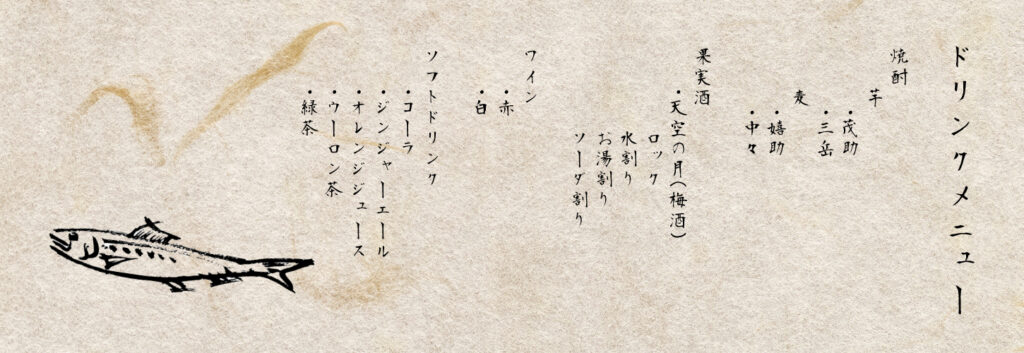 ドリンクメニュー
焼酎
芋
・茂助
・三岳
麦
・嬉助
・中々
果実酒
・天空の月(梅酒)
ロック
水割り
お湯割り
ソーダ割り
ワイン
・赤
・白
ソフトドリンク
・コーラ
・ジンジャーエール
・オレンジジュース
・ウーロン茶
・緑茶